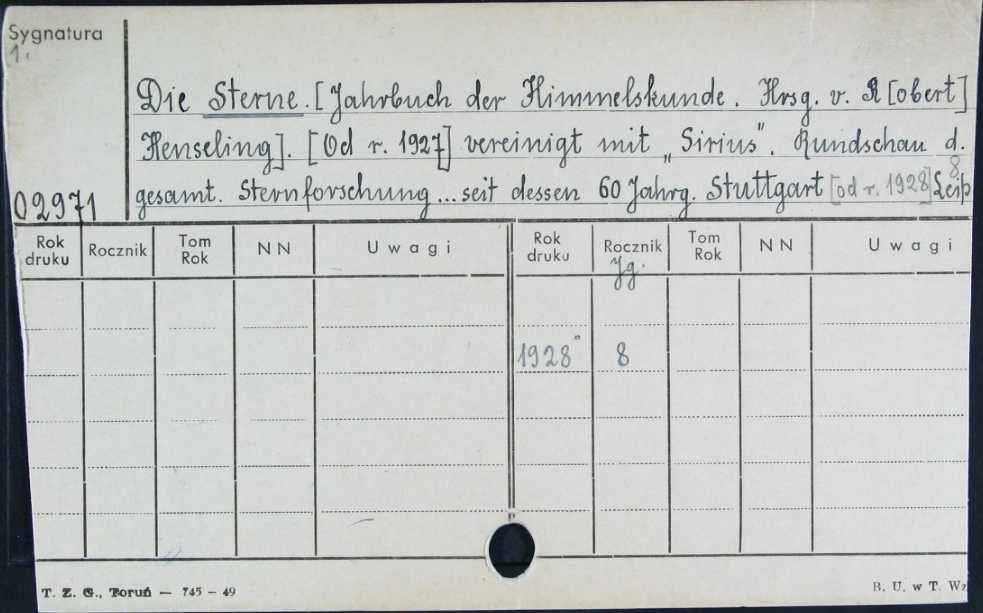 Sygnatura
1.
Die Sterne. [Jahrbuch der Himmelskunde. Hrsg. v. R[obert]
Henseling]. [Od r. 1927] vereinigt mit „Sirius”. Rundschau d.
gesamt. Sternforschung... seit dessen 60 Jahrg. Stuttgart [od r. 1928] Leip
8
02971
Rok druku Rocznik Tom Rok NN Uwagi Rok druku Rocznik Tom Rok NN Uwagi
Jg.
1928 8
T. Z. G., Toruń — 745 – 49
B. U. w T. Wz